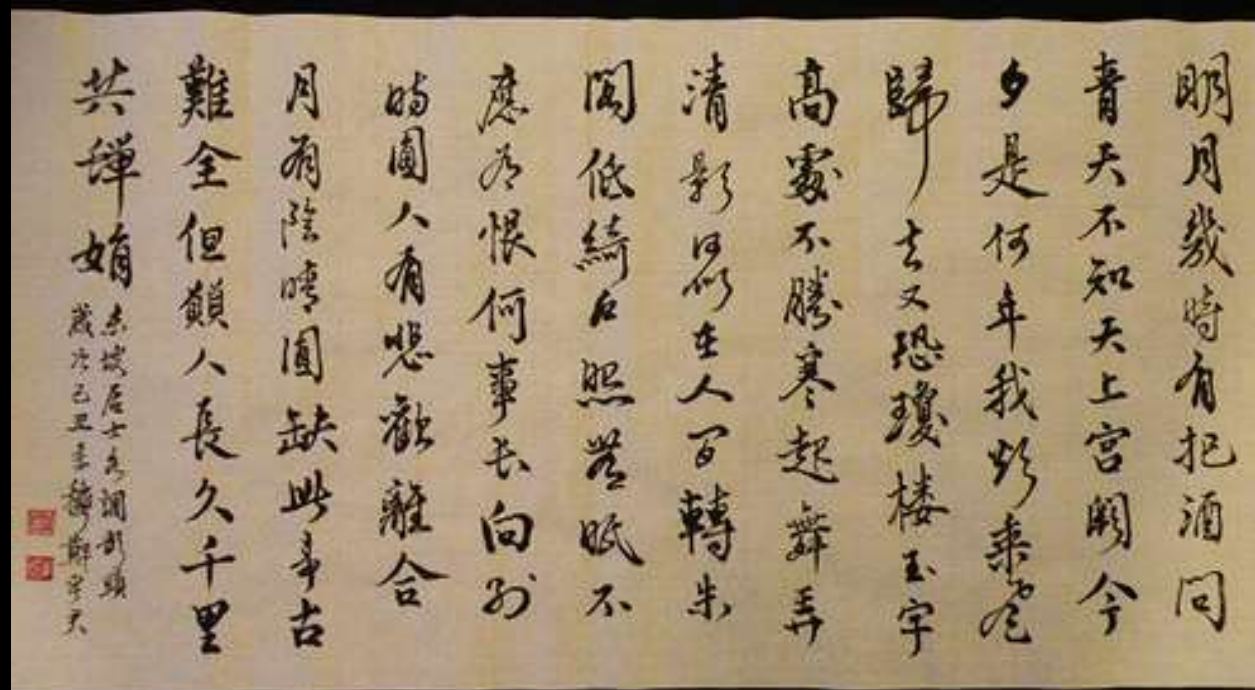 明月幾時有把酒問
青天不知天上宮闕今
夕是何年我欲乘風
歸去又恐瓊楼玉宇
高處不勝寒起舞弄
清影何似在人間轉朱
閣低綺户照無眠不
應有恨何事長向别
時圓人有悲歡離合
月有陰晴圓缺此事古
難全但願人長久千里
共嬋娟
東坡居士水調歌頭
歲次己丑季龝鄭